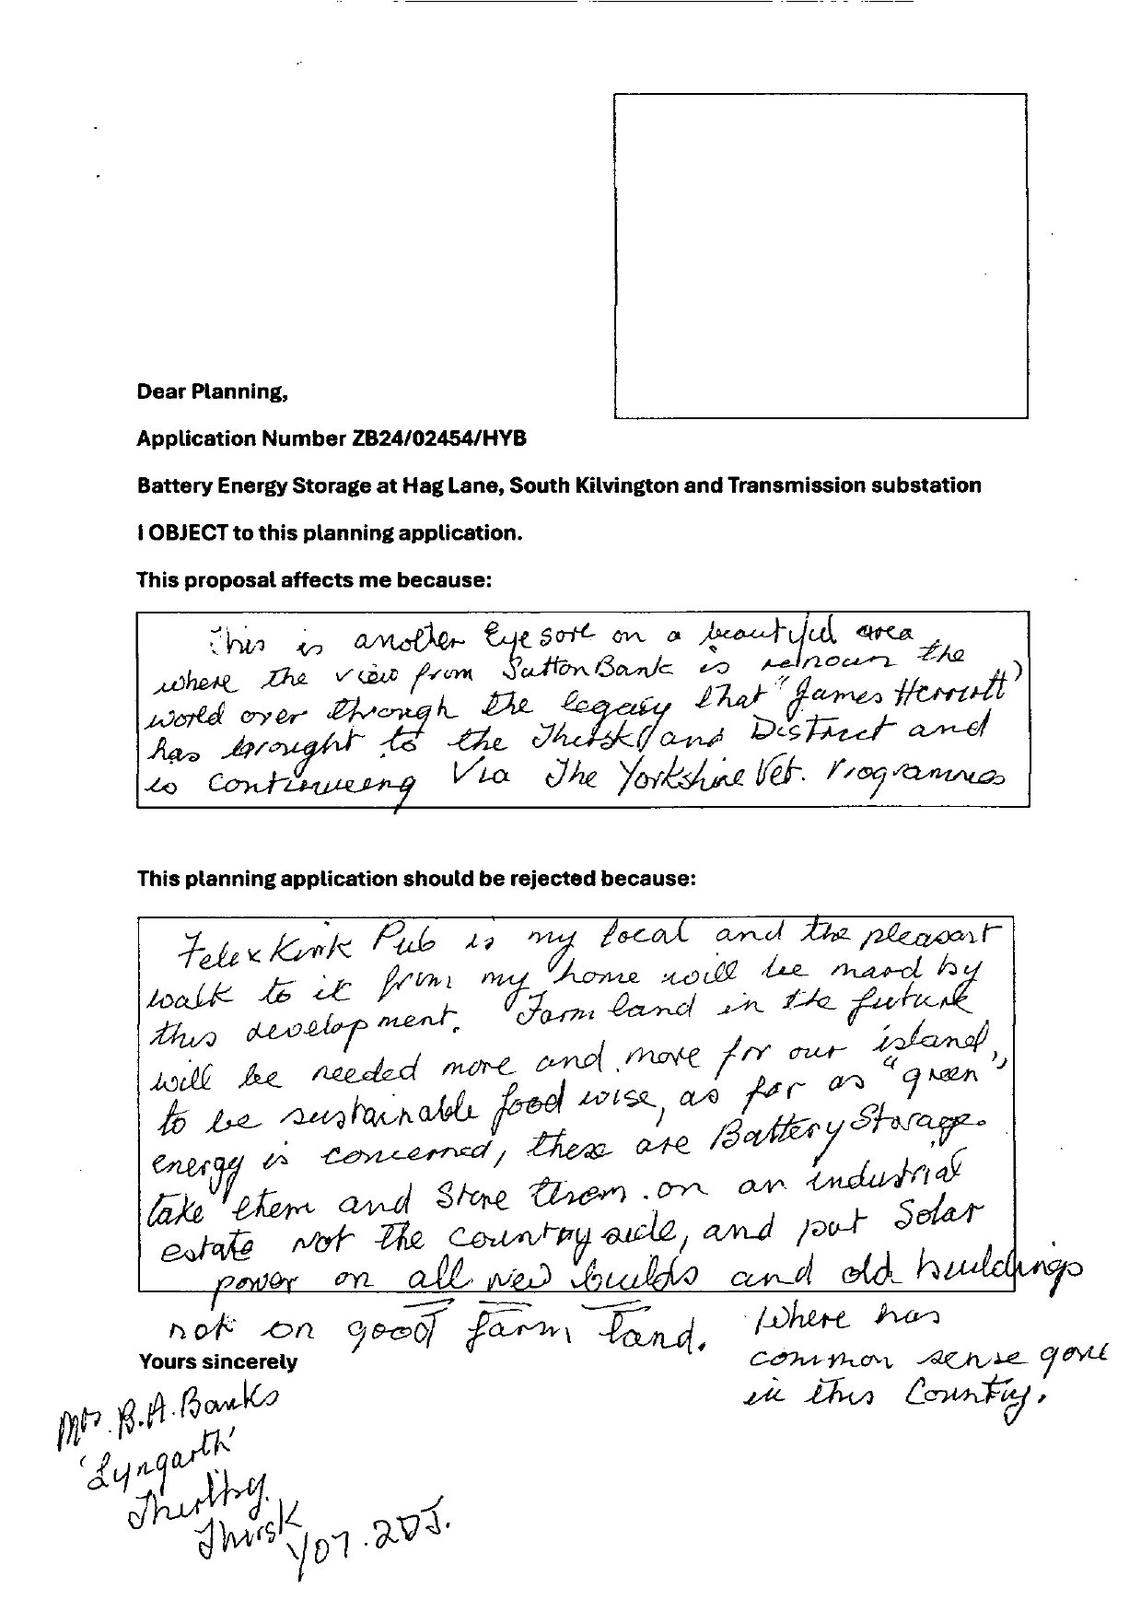 Dear Planning,
Application Number ZB24/02454/HYB
Battery Energy Storage at Hag Lane, South Kilvington and Transmission substation
I OBJECT to this planning application.
This proposal affects me because:
This is another Eyesore on a beautiful area,
where the view from Sutton Bank is renoun the
world over through the legacy that "James Herriott"
has brought to the Thirsk and District and
is continueing Via The Yorkshire Vet. Programmes
This planning application should be rejected because:
Felix Kirk Pub is my local and the pleasant
walk to it from my home will be mard by
this development. Farm land in the future
will be needed more and more for our island,
to be sustainable food wise, as far as "green"
energy is concerned, these are Battery Storage.
take them and Store them on an industrial
estate not the country side, and put Solar
power on all new builds and old buildings
not on good farm land. Where has
common sense gone
in this Country.
Yours sincerely
Mrs. B.A. Banks
'Lyngarth'
Thirlby.
Thirsk
YO7. 2DJ.